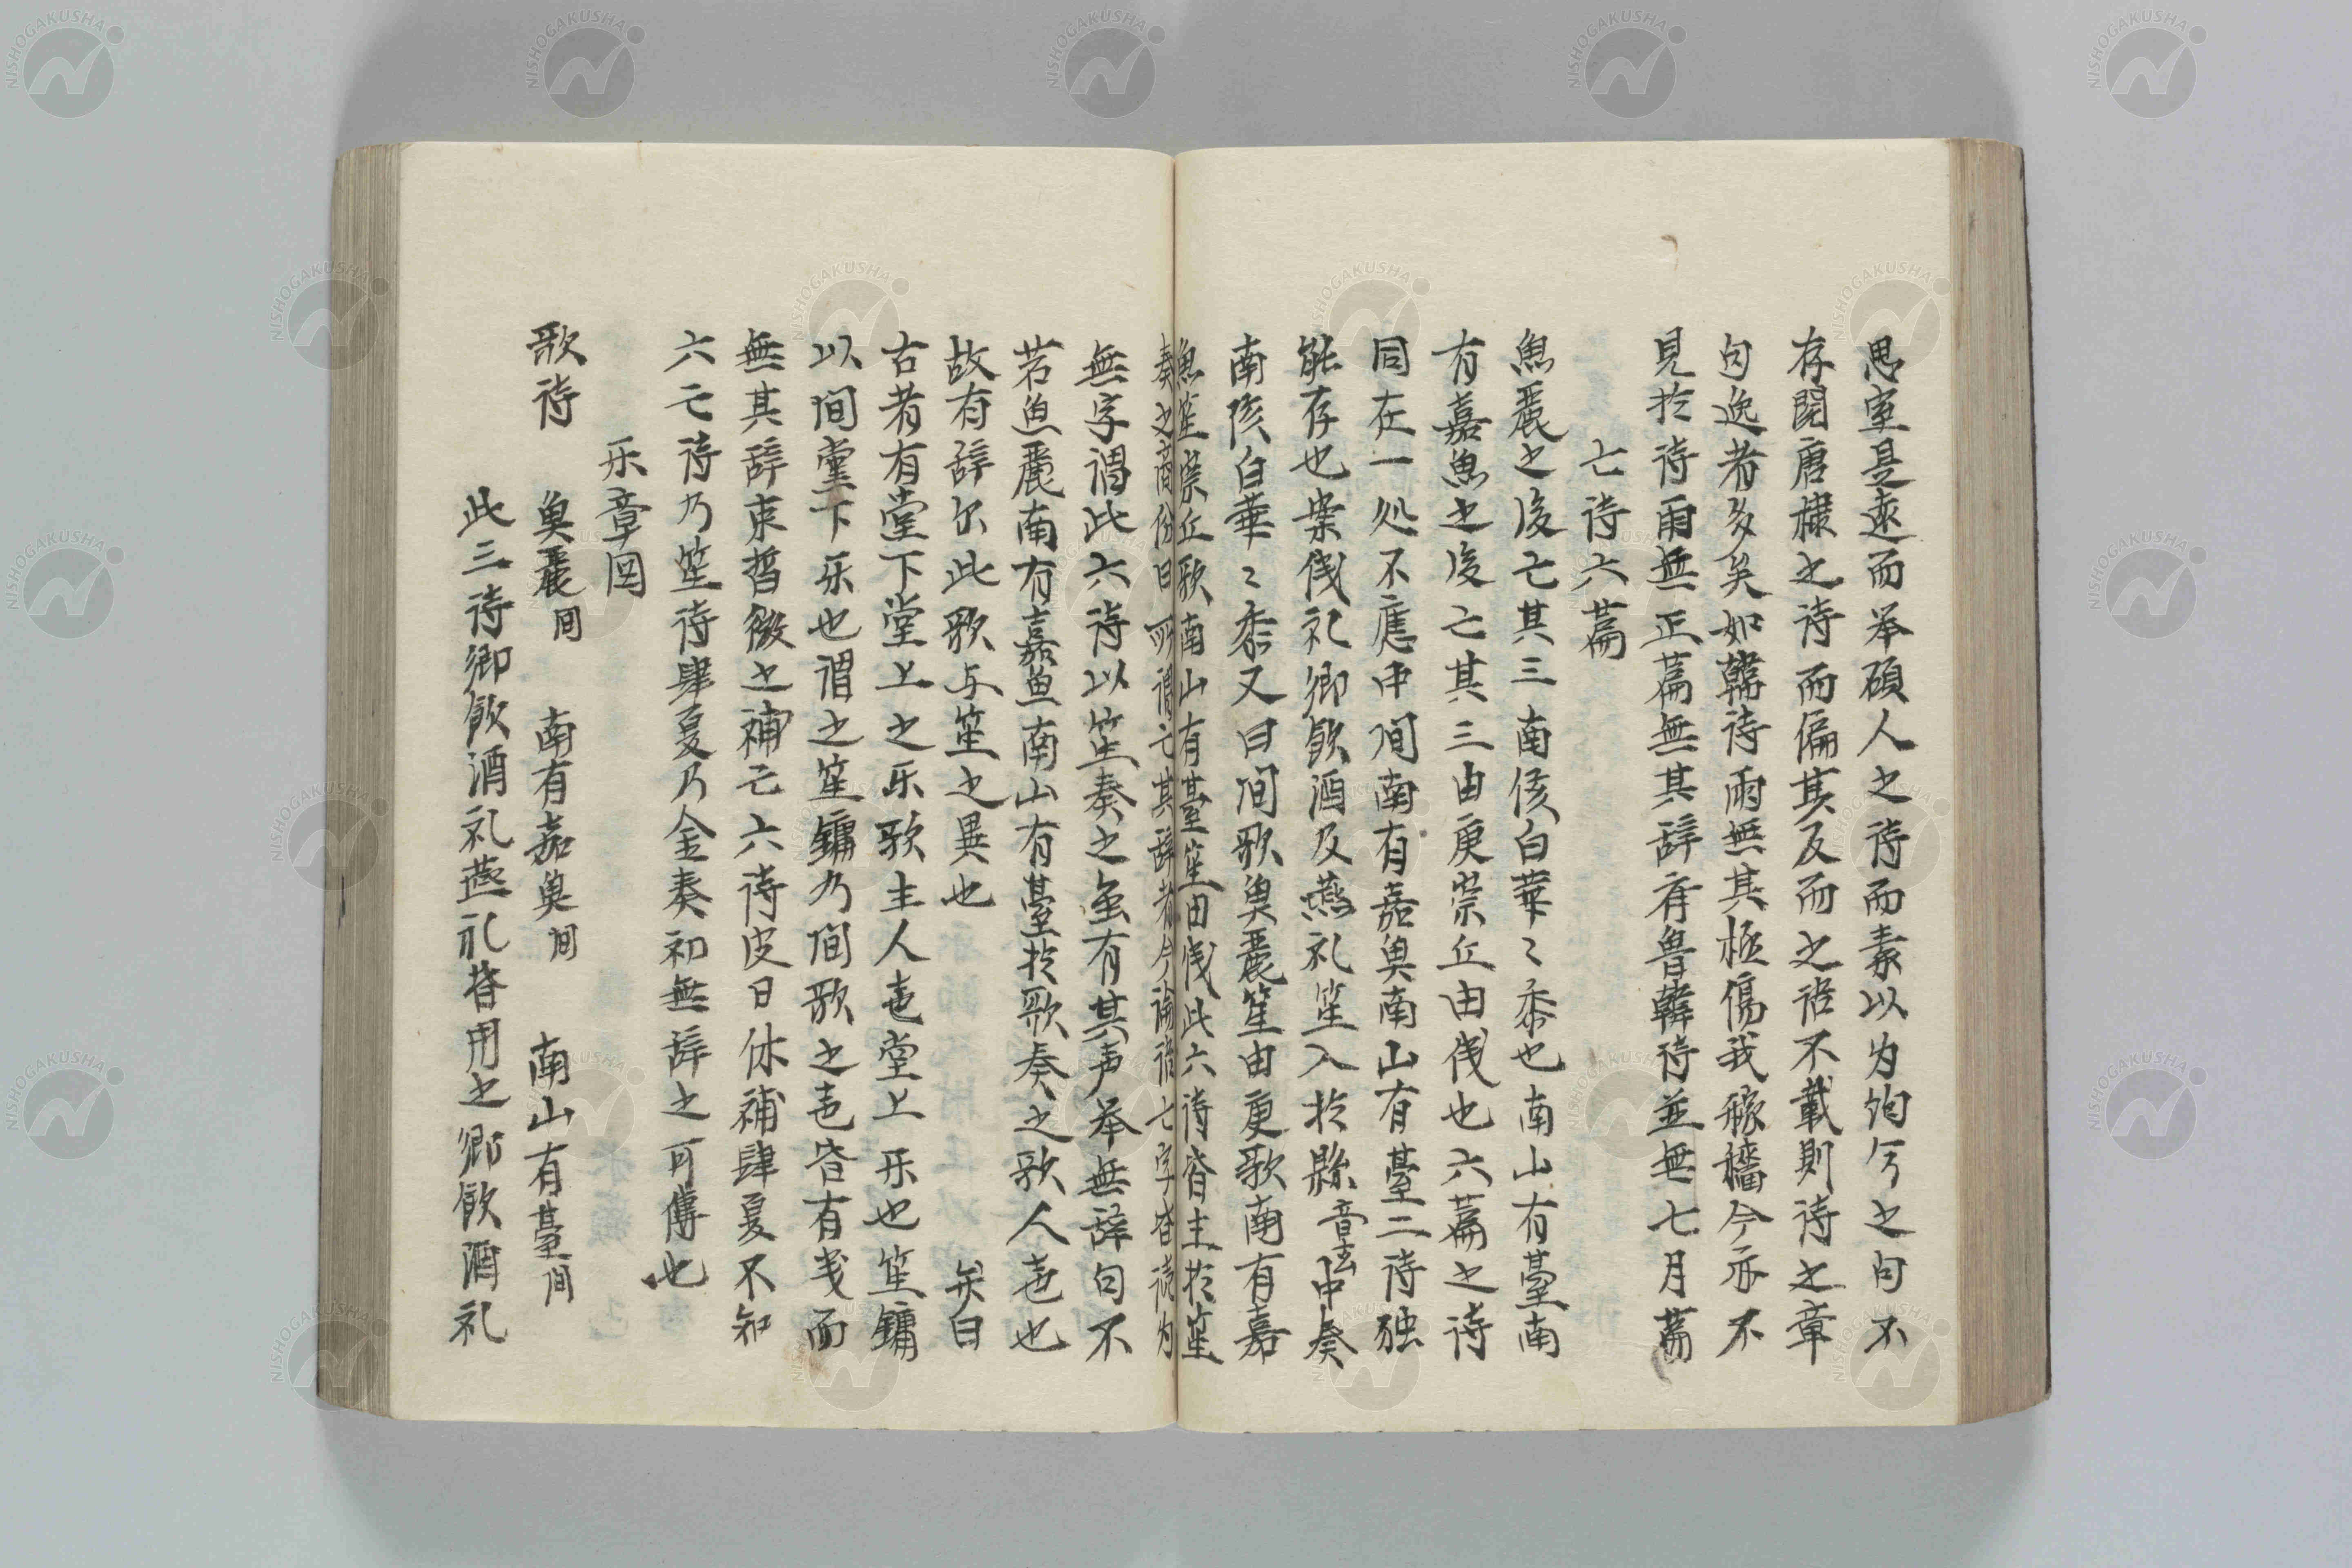 思室是遠而举碩人之诗而素以为绚兮之句不
存閲唐棣之诗而偏其反而之语不載則诗之章
句逸者多矣如韓诗雨無其極傷我稼穡今亦不
見於诗雨無正篇無其辞存魯韓诗並無七月篇
亡诗六篇
魚麗之後亡其三南陔白華〻黍也南山有臺南
有嘉魚之後亡其三由庚崇丘由儀也六篇之诗
同在一处不應中间南有嘉臭南山有臺二诗独
能存也案儀礼卿飲酒及燕礼笙入於縣中奏
南陔白華〻黍又曰间歌臭麗笙由庚歌南有嘉
魚笙崇丘歌南山有臺笙由儀此六诗皆主於笙
奏之商份曰所谓亡其辞者今論语亡字皆读为
無字谓此六诗以笙奏之虽有其声举無辞句不
若魚麗南有嘉魚南山有臺於歌奏之歌人者也
故有辞尔此歌与笙之異也 矣曰
古者有堂下堂上之乐歌主人者堂上乐也笙鏞
以间堂下乐也谓之笙鏞乃间歌之者皆有義而
無其辞束晳微之補亡六诗皮日休補肆夏不知
六亡诗乃笙诗肆夏乃金奏初無辞之可傳也
乐章図
歌诗 臭麗间 南有嘉臭间 南山有臺间
此三诗卿飲酒礼燕礼皆用之卿飲酒礼
NISHOGAKUSHA